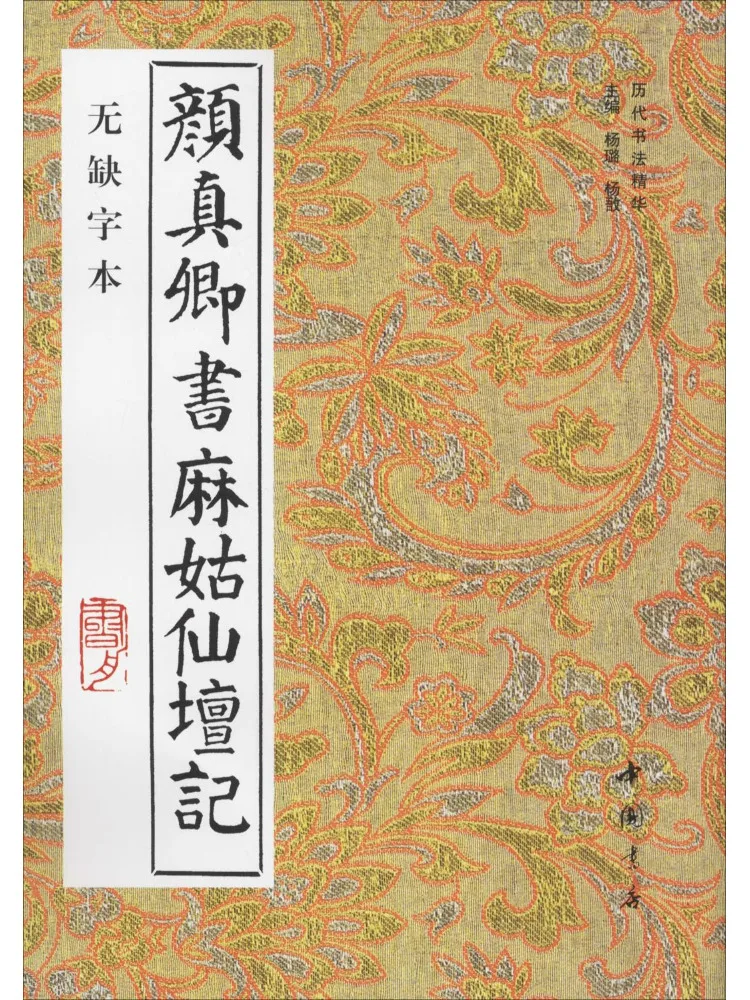 历代书法精华
主编 杨璐 杨敢
顔真卿書麻姑仙壇記
无缺字本
中国书店